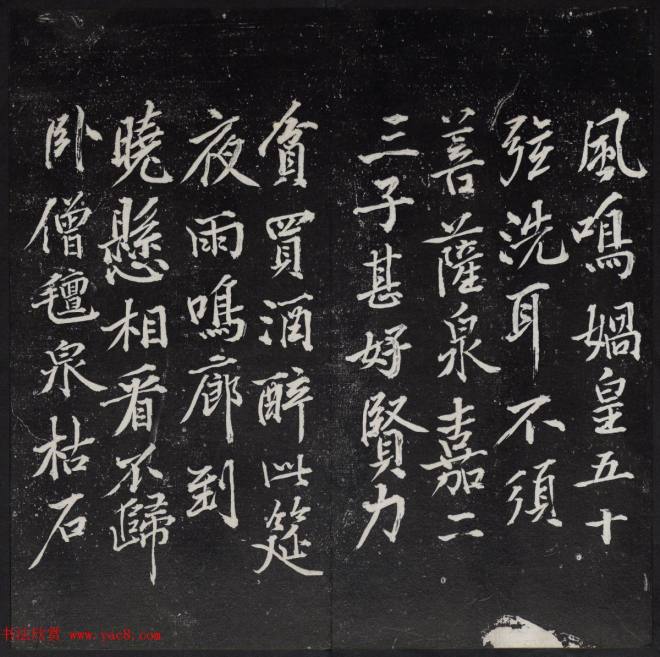 風鳴媧皇五十
弦洗耳不須
菩薩泉嘉二
三子甚好賢力
貧買酒醉此筵
夜雨鳴廊到
曉懸相看不歸
卧僧氊泉枯石
书法欣赏 www.yac8.com